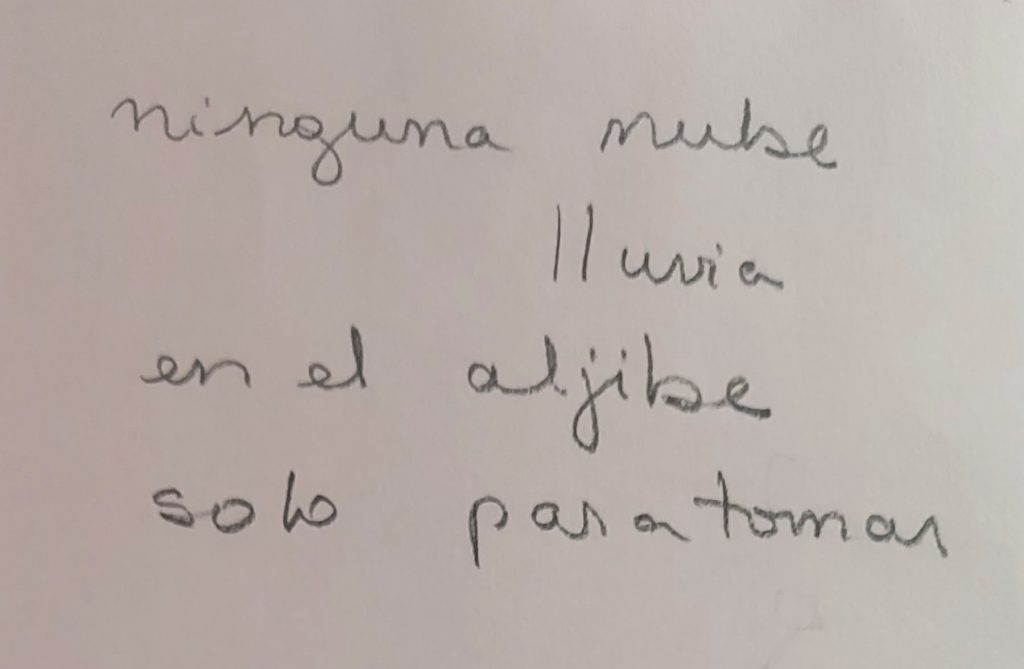 ninguna nube
lluvia
en el aljibe
solo para tomar